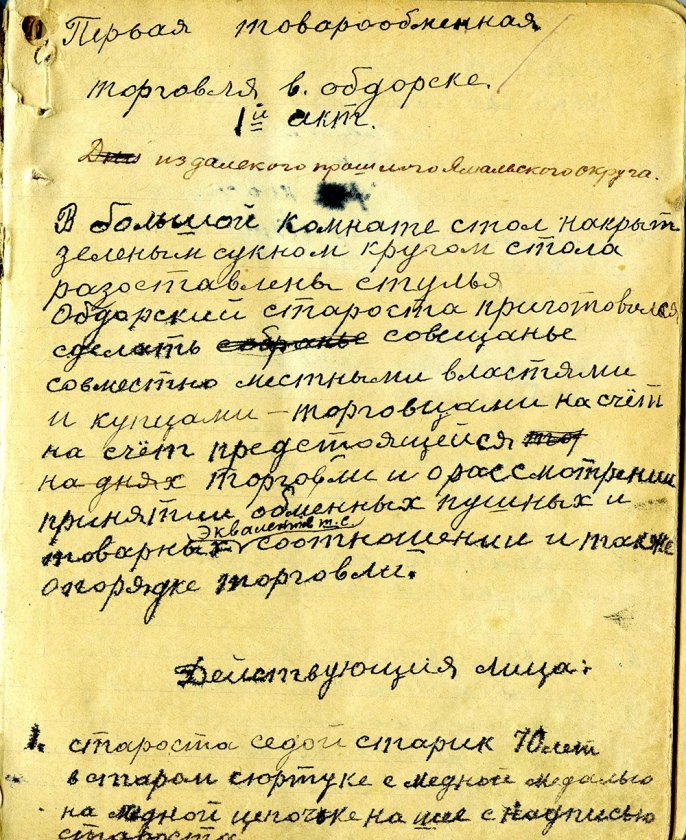 Первая товарообменная
торговля в. обдорске.
1й акт.
Дни из далекого прошлого Ямальского округа.
В большой комнате стол накрыт
зеленым сукном кругом стола
разоставлены стулья
Обдорский староста приготовился
сделать собранье совещанье
совместно местными властями
и купцами – торговцами на счёт
на счёт предстоящейся тог
на днях торговли и о рассмотрении
принятии обменных пушных и
эквалентов т.е
товарных соотношении и также
о порядке торговли.
Действующия лица:
1. староста седой старик 70 лет
в старом сюртуке с медной медалью
на медной цепочке на шее с надписью
староста